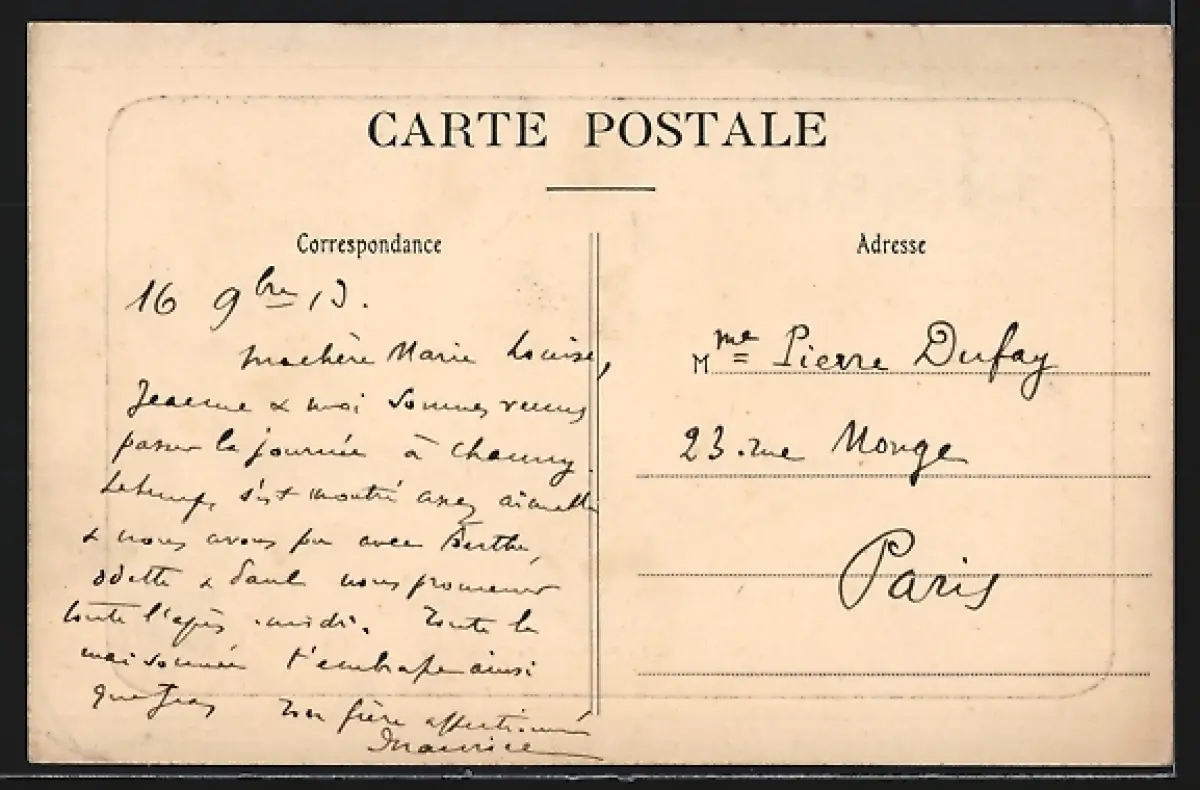 CARTE POSTALE
Correspondance
16 9bre 13.
Ma chère Marie Louise,
Jeanne & moi sommes venus
passer la journée à Chauny.
Le temps s'est montré assez aimable
& nous avons pu avec Berthe,
Odette & Paul nous promener
toute l'après-midi. Toute la
maisonnée t'embrasse ainsi
que
Ton frère affectionné
Maurice
Adresse
Mme Pierre Dufay
23 rue Monge
Paris